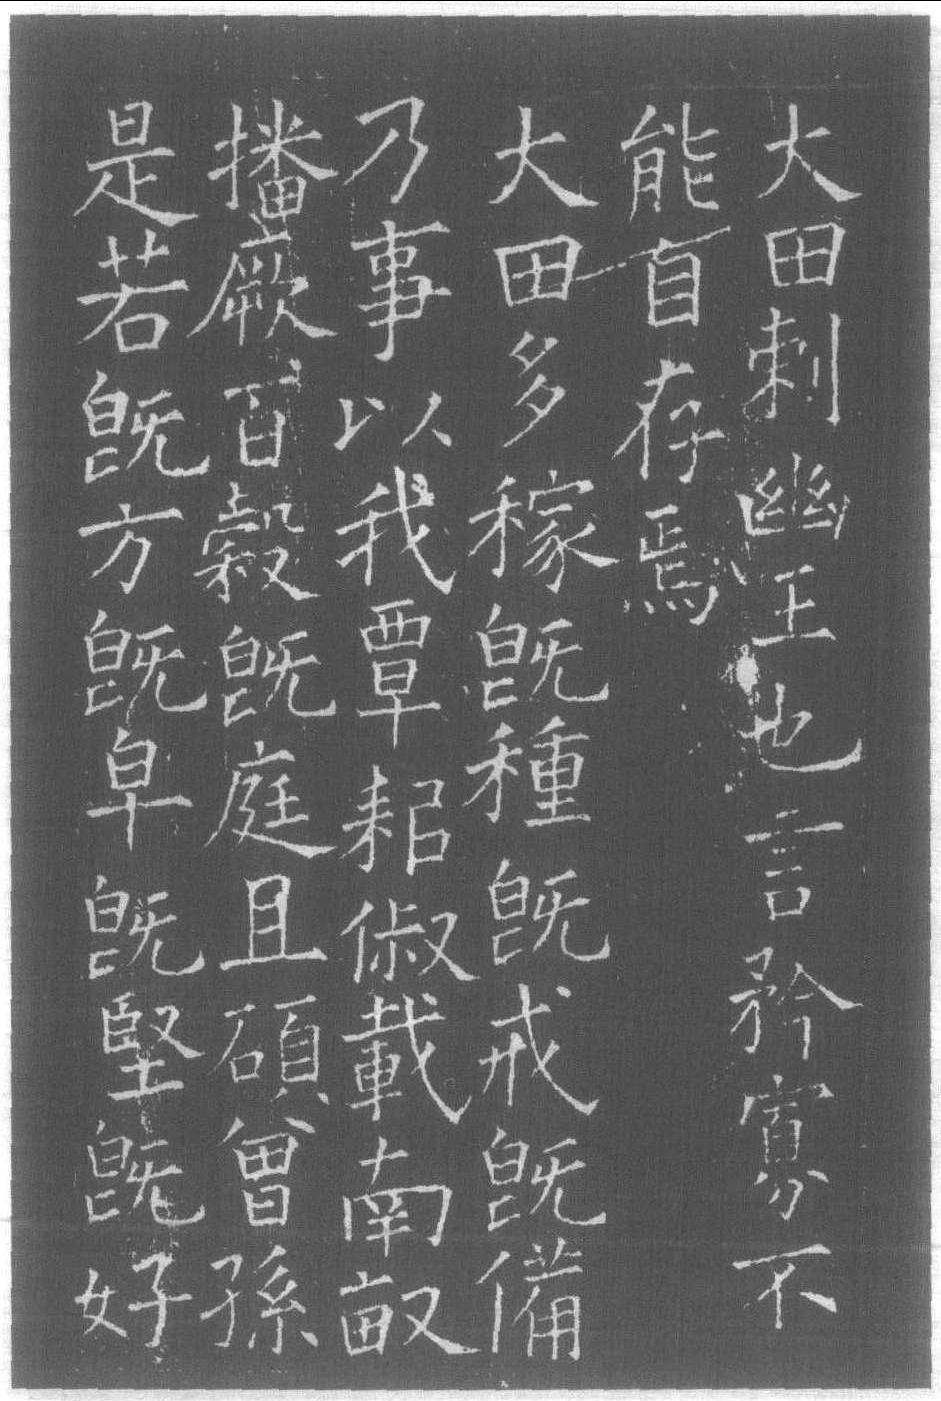 大田刺幽王也言矜寡不
能自存焉
大田多稼既種既戒既備
乃事以我覃耜俶載南畝
播厥百穀既庭且碩曾孫
是若既方既皁既堅既好